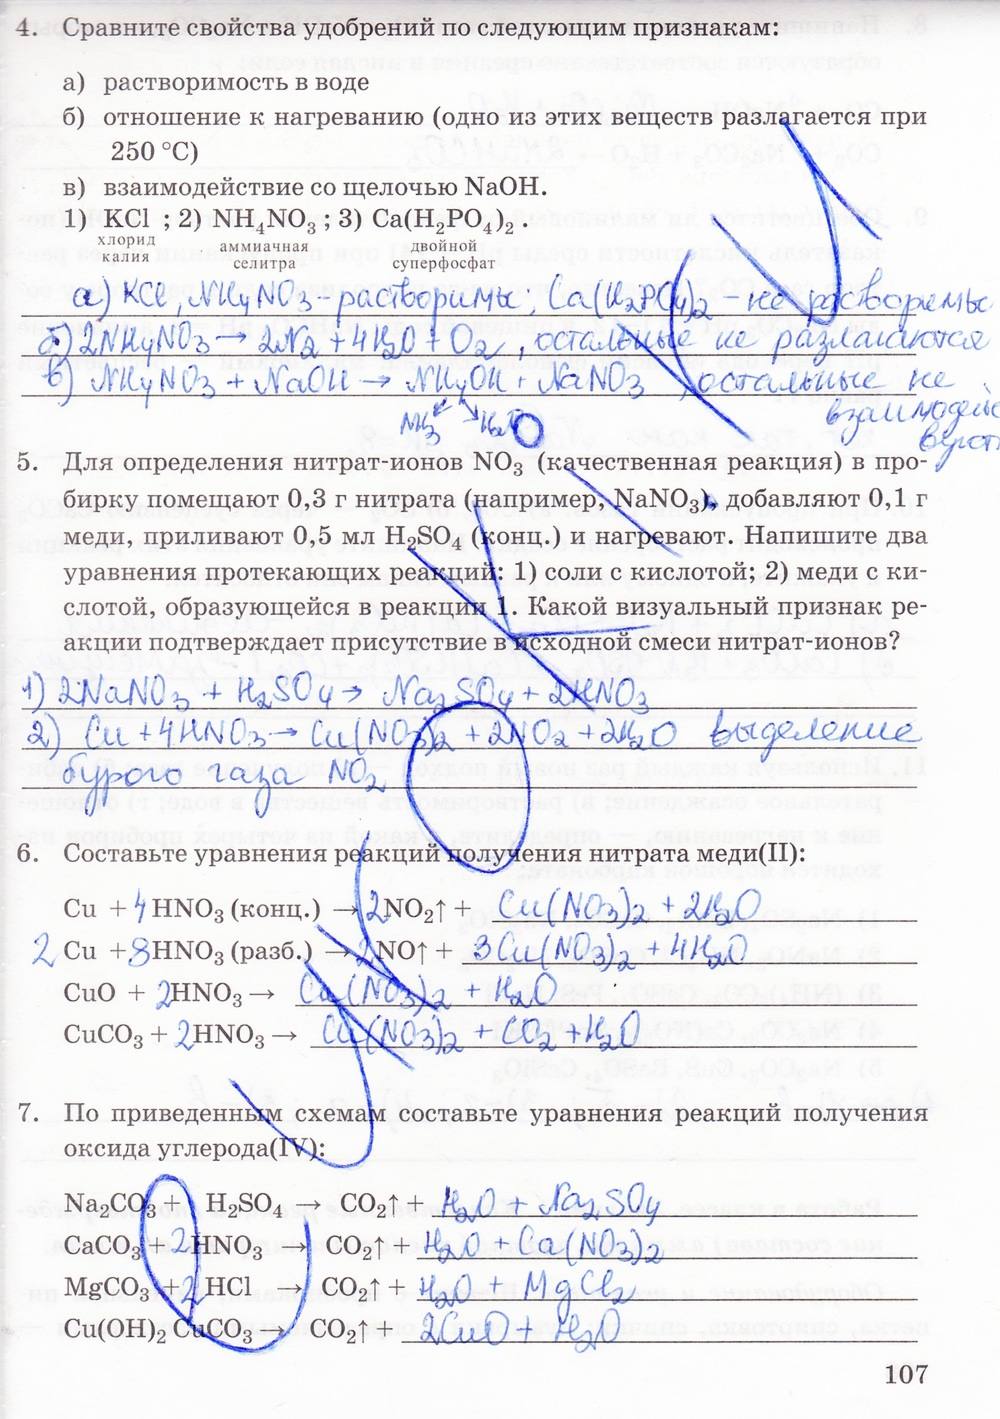 4. Сравните свойства удобрений по следующим признакам:
а) растворимость в воде
б) отношение к нагреванию (одно из этих веществ разлагается при
250 °С)
в) взаимодействие со щелочью NaOH.
1) KCl ; 2) NH₄NO₃ ; 3) Ca(H₂PO₄)₂ .
хлорид калия аммиачная селитра двойной суперфосфат
а) KCl, NH4NO3 - растворимы Ca(H2PO4)2 - не растворимы
б) 2NH4NO3 → 2N2 + 4H2O + O2, остальные не разлагаются
в) NH4NO3 + NaOH → NH4OH + NaNO3, остальные не
взаимодейс
NH3 H2O
вуют
5. Для определения нитрат-ионов NO₃ (качественная реакция) в про-
бирку помещают 0,3 г нитрата (например, NaNO₃), добавляют 0,1 г
меди, приливают 0,5 мл H₂SO₄ (конц.) и нагревают. Напишите два
уравнения протекающих реакций: 1) соли с кислотой; 2) меди с ки-
слотой, образующейся в реакции 1. Какой визуальный признак ре-
акции подтверждает присутствие в исходной смеси нитрат-ионов?
1) 2NaNO3 + H2SO4 → Na2SO4 + 2HNO3
2) Cu + 4HNO3 → Cu(NO3)2 + 2NO2 + 2H2O выделение
бурого газа NO2
6. Составьте уравнения реакций получения нитрата меди(II):
Cu + 4 HNO₃ (конц.) → 2NO₂↑ + Cu(NO3)2 + 2H2O
2 Cu + 8HNO₃ (разб.) → 2NO↑ + 3Cu(NO3)2 + 4H2O
CuO + 2HNO₃ → Cu(NO3)2 + H2O
CuCO₃ + 2HNO₃ → Cu(NO3)2 + CO2 + H2O
7. По приведенным схемам составьте уравнения реакций получения
оксида углерода(IV):
Na₂CO₃ + H₂SO₄ → CO₂↑ + H2O + Na2SO4
CaCO₃ + 2HNO₃ → CO₂↑ + H2O + Ca(NO3)2
MgCO₃ + 2 HCl → CO₂↑ + H2O + MgCl2
Cu(OH)₂ CuCO₃ → CO₂↑ + 2CuO + H2O
107